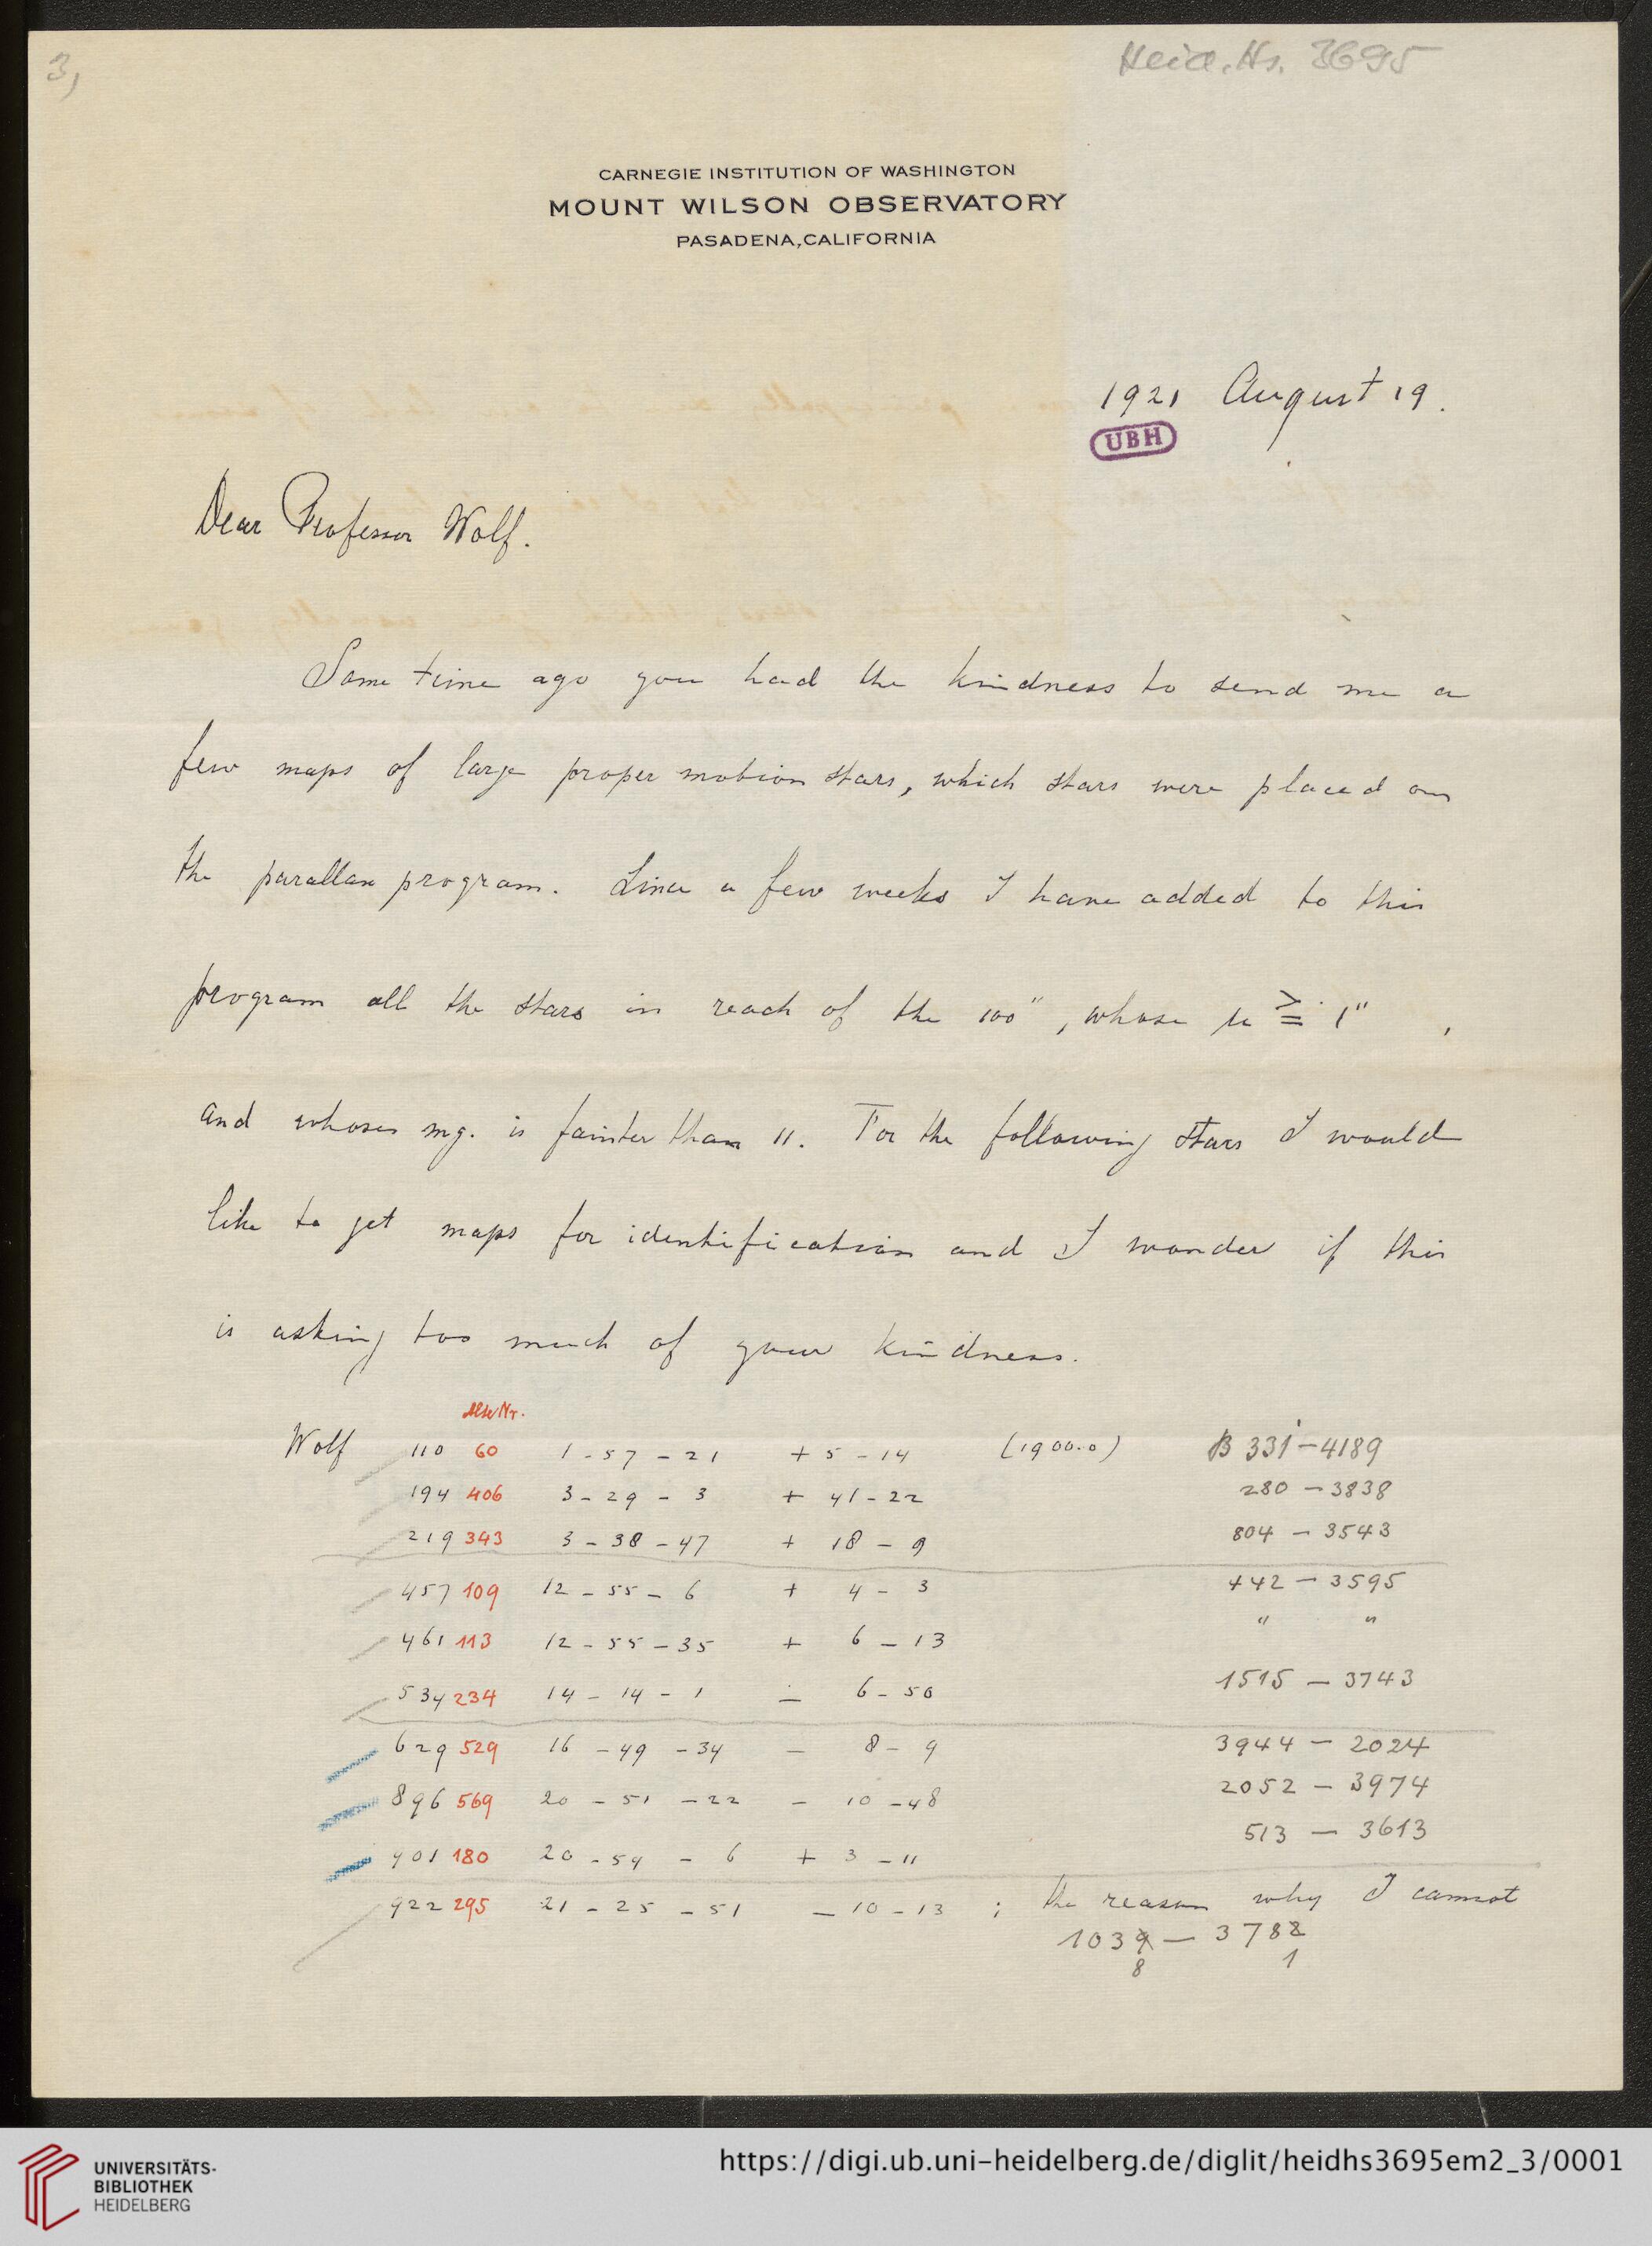 3,
Heid. Hs. 3695
CARNEGIE INSTITUTION OF WASHINGTON
MOUNT WILSON OBSERVATORY
PASADENA, CALIFORNIA
1921 August 19.
UBH
Dear Professor Wolf.
Some time ago you had the kindness to send me a
few maps of large proper motion stars, which stars were placed on
the parallax program. Since a few weeks I have added to this
program all the stars in reach of the 100", whose μ ≧ 1",
and whoses mg. is fainter than 11. For the following stars I would
like to get maps for identification and I wonder if this
is asking too much of your kindness.
Alte Nr.
Wolf 110 60 1 - 57 - 21 + 5 - 14 (1900.0) B 331 - 4189
194 406 3 - 29 - 3 + 41 - 22 280 - 3838
219 343 3 - 38 - 47 + 18 - 9 804 - 3543
457 109 12 - 55 - 6 + 4 - 3 442 - 3595
461 113 12 - 55 - 35 + 6 - 13 " "
534 234 14 - 14 - 1 - 6 - 50 1515 - 3743
629 529 16 - 49 - 34 - 8 - 9 3944 - 2024
896 569 20 - 51 - 22 - 10 - 48 2052 - 3974
901 180 20 - 54 - 6 + 3 - 11 513 - 3613
922 295 21 - 25 - 51 - 10 - 13 ; the reason why I cannot
1039 - 3782
8 1
UNIVERSITÄTS-
BIBLIOTHEK
HEIDELBERG
https://digi.ub.uni-heidelberg.de/diglit/heidhs3695em2_3/0001